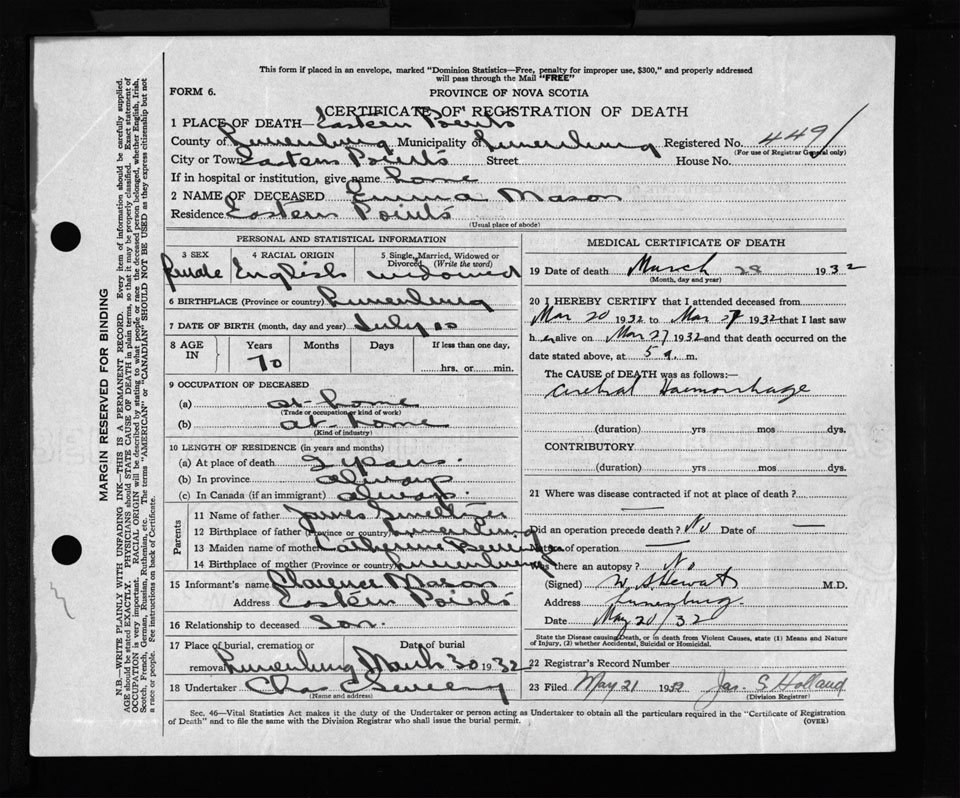 This form if placed in an envelope, marked "Dominion Statistics—Free, penalty for improper use, $300," and properly addressed
will pass through the Mail "FREE"
FORM 6.
PROVINCE OF NOVA SCOTIA
CERTIFICATE OF REGISTRATION OF DEATH
1 PLACE OF DEATH— Eastern Points
County of Lunenburg Municipality of Lunenburg Registered No. 449
(For use of Registrar General only)
City or Town Eastern Points Street House No.
If in hospital or institution, give name home
2 NAME OF DECEASED Emma Mason
Residence Eastern Points
(Usual place of abode)
PERSONAL AND STATISTICAL INFORMATION
3 SEX 4 RACIAL ORIGIN 5 Single, Married, Widowed or Divorced (Write the word)
female English widowed
6 BIRTHPLACE (Province or country) Lunenburg
7 DATE OF BIRTH (month, day and year) July 10
8 AGE IN Years Months Days If less than one day,
70 hrs. or min.
9 OCCUPATION OF DECEASED
(a) at home
(Trade or occupation or kind of work)
(b) at home
(Kind of industry)
10 LENGTH OF RESIDENCE (in years and months)
(a) At place of death 2 years.
(b) In province always
(c) In Canada (if an immigrant) always.
Parents
11 Name of father James
12 Birthplace of father (Province or country) Lunenburg
13 Maiden name of mother Catherine
14 Birthplace of mother (Province or country) Lunenburg
15 Informant's name Clarence Mason
Address Eastern Points
16 Relationship to deceased Son.
17 Place of burial, cremation or removal Date of burial
Lunenburg March 30 1932
18 Undertaker Chas
(Name and address)
MEDICAL CERTIFICATE OF DEATH
19 Date of death March 28 1932
(Month, day and year)
20 I HEREBY CERTIFY that I attended deceased from
Mar 20 1932 to Mar 27 1932 that I last saw
h er alive on Mar 27 1932 and that death occurred on the
date stated above, at 5 a. m.
The CAUSE of DEATH was as follows:—
Cerebral Haemorrhage
(duration) yrs mos dys.
CONTRIBUTORY
(duration) yrs mos dys.
21 Where was disease contracted if not at place of death?
Did an operation precede death? No Date of —
Nature of operation —
Was there an autopsy? No
(Signed) W Stewart M.D.
Address Lunenburg.
Date May 20/32
State the Disease causing Death, or in death from Violent Causes, state (1) Means and Nature
of Injury, (2) whether Accidental, Suicidal or Homicidal.
22 Registrar's Record Number
23 Filed May 21 1932 Jas. S Holland
(Division Registrar)
Sec. 46—Vital Statistics Act makes it the duty of the Undertaker or person acting as Undertaker to obtain all the particulars required in the "Certificate of Registration
of Death" and to file the same with the Division Registrar who shall issue the burial permit.
(OVER)
MARGIN RESERVED FOR BINDING
N.B.—WRITE PLAINLY WITH UNFADING INK—THIS IS A PERMANENT RECORD. Every item of information should be carefully supplied.
AGE should be stated EXACTLY. PHYSICIANS should STATE CAUSE OF DEATH in plain terms, so that it may be properly classified. Exact statement of
OCCUPATION is very important. RACIAL ORIGIN will be described by stating to what people or race the deceased person belonged, whether English, Irish,
Scotch, French, German, Russian, Ruthenian, etc. The terms "AMERICAN" or "CANADIAN" SHOULD NOT BE USED as they express citizenship but not
a race or people. See instructions on back of Certificate.